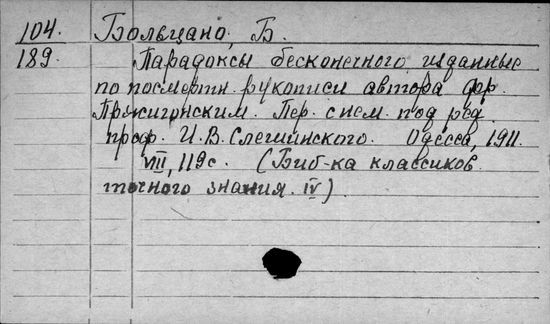 104. Больцано, Б.
189. Парадоксы бесконечного изданные
по посмертн. рукописи автора фр.
Пржигонским. Пер. с нем. под ред.
проф. И. В. Слешинского. Одесса, 1911.
VIII, 119 с. (Биб-ка классиков
точного знания. IV)